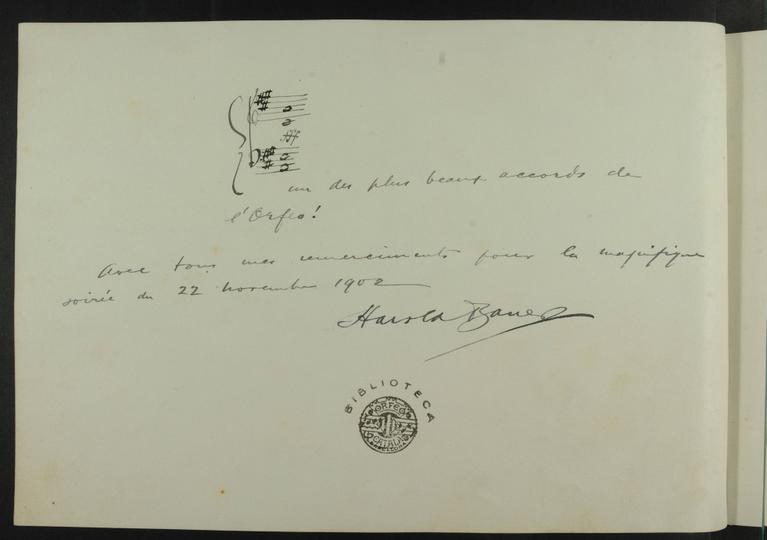 fff
un des plus beaux accords de
l'Orfeo!
Avec tous mes remerciments pour la magnifique
soirée du 22 novembre 1902
Harold Bauer
BIBLIOTECA
ORFEÓ
CATALÀ
BARCELONA